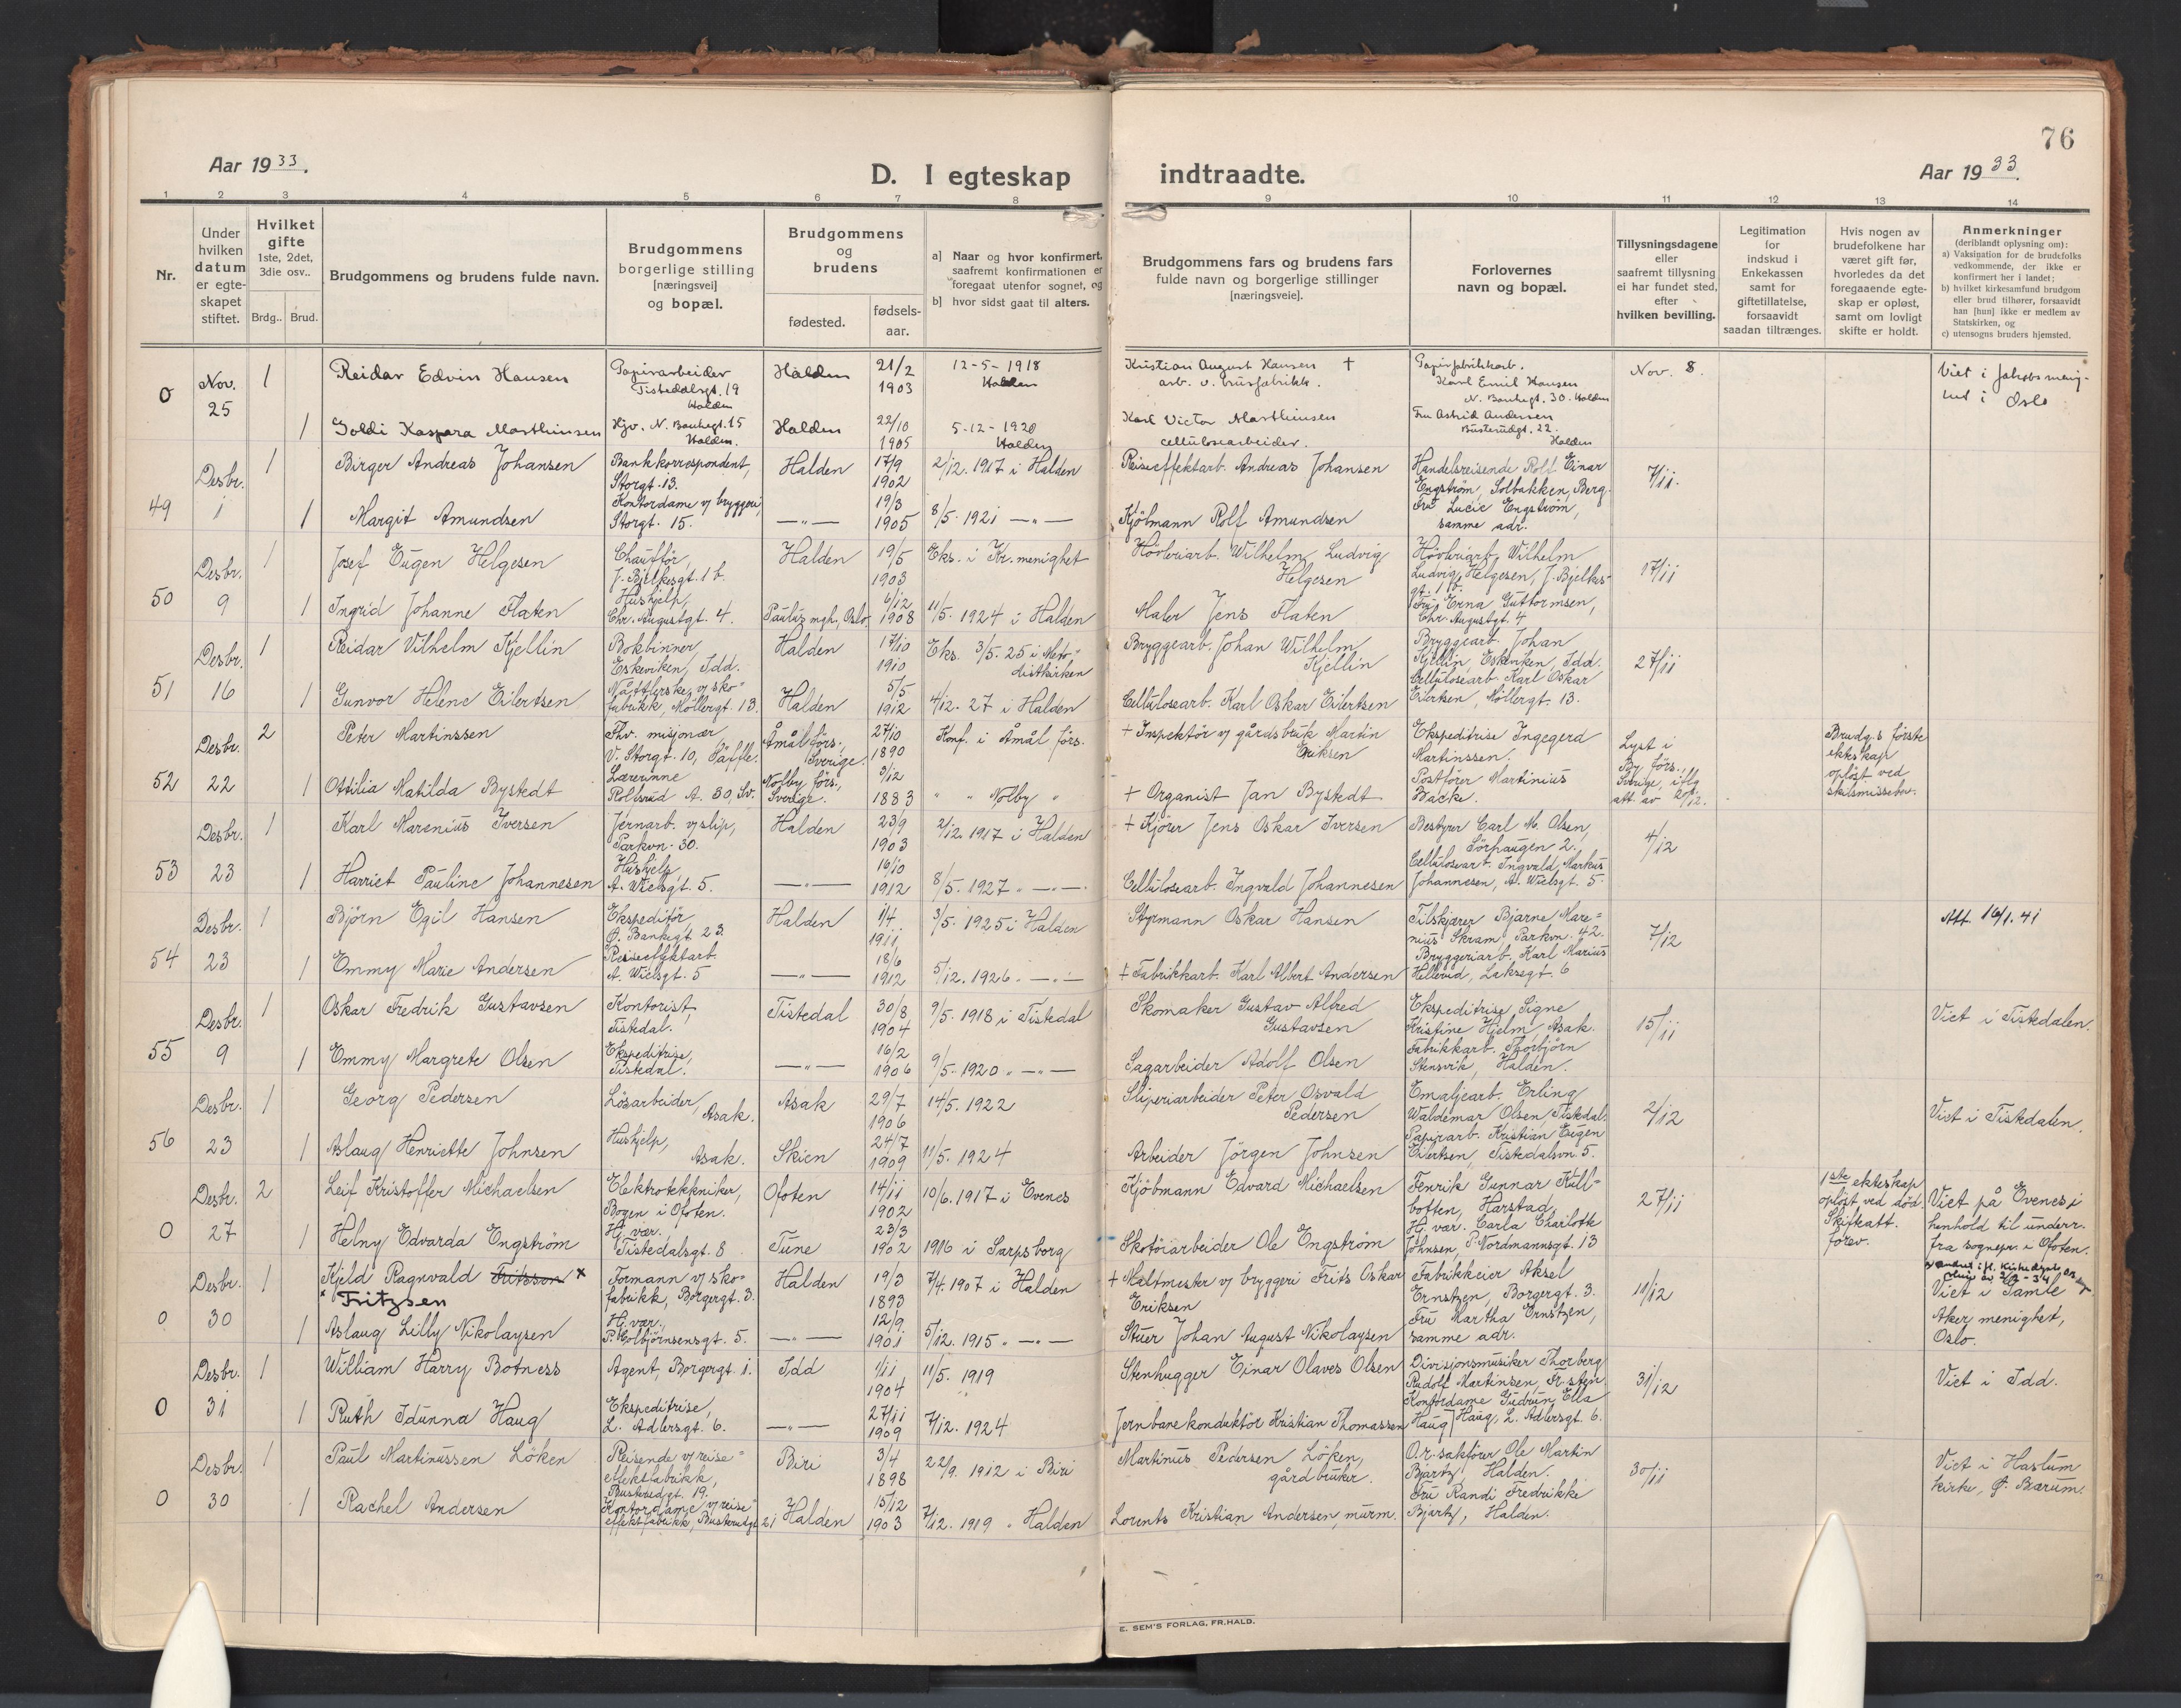 76
Aar 1933.
D. I egteskap indtraadte.
Aar 1933.
1 2 3 4 5 6 7 8 9 10 11 12 13 14
Nr.
Under hvilken datum er egteskapet stiftet.
Hvilket gifte 1ste, 2det, 3die osv..
Brdg.. Brud.
Brudgommens og brudens fulde navn.
Brudgommens borgerlige stilling [næringsvei] og bopæl.
Brudgommens og brudens
fødested.
fødsels-aar.
a] Naar og hvor konfirmert, saafremt konfirmationen er foregaat utenfor sognet, og
b] hvor sidst gaat til alters.
Brudgommens fars og brudens fars fulde navn og borgerlige stillinger [næringsveie].
Forlovernes navn og bopæl.
Tillysningsdagene eller saafremt tillysning ei har fundet sted, efter hvilken bevilling.
Legitimation for indskud i Enkekassen samt for giftetillatelse, forsaavidt saadan tiltrænges.
Hvis nogen av brudefolkene har været gift før, hvorledes da det foregaaende egteskap er opløst, samt om lovligt skifte er holdt.
Anmerkninger (deriblandt oplysning om):
a) Vaksination for de brudefolks vedkommende, der ikke er konfirmert her i landet;
b) hvilket kirkesamfund brudgom eller brud tilhører, forsaavidt han [hun] ikke er medlem av Statskirken, og
c) utensogns bruders hjemsted.
0 Nov. 25 1 Reidar Edvin Hansen Papirarbeider Tistedalsgt. 19 Halden Halden 21/2 1903 12-5-1918 Halden Kristian August Hansen + arb. v. brusfabrikk. Papirfabrikkarb. Karl Emil Hansen N. Bankegt. 30. Halden Nov. 8. Viet i Jakobs menighet i Oslo
1 Goldi Kaspara Marthinsen Hjv. N. Bankegt. 15 Halden. Halden 22/10 1905 5-12-1920 Halden Karl Victor Marthinsen cellulosearbeider. Fru Astrid Andersen Busterudgt. 22. Halden
49 Desbr. 1 1 Birger Andreas Johansen Bankkorrespondent, Storgt. 13. Halden 17/9 1902 2/12. 1917 i Halden Reiseeffektarb. Andreas Johansen Handelsreisende Rolf Einar Engström, Solbakken, Berg. 7/11.
1 Margit Amundsen Kontordame v/ bryggeri, Storgt. 15. —"— 19/3 1905 8/5. 1921 —"— Kjöbmann Rolf Amundsen Fru Lucie Engström, samme adr.
50 Desbr. 9 1 Josef Eugen Helgesen Chaufför, J. Bjelkesgt. 1 b. Halden 19/5 1903 Eks. i Kr. menighet Hövleriarb. Wilhelm Ludvig Helgesen Hövleriarb. Wilhelm Ludvig Helgesen, J. Bjelkesgt. 1 b. 17/11
1 Ingrid Johanne Flaten Hushjelp, Chr. Augustgt. 4. Paulus mgh., Oslo. 6/12 1908 11/5. 1924 i Halden Maler Jens Flaten Fru Erna Guttormsen, Chr. Augustgt. 4
51 Desbr. 16 1 Reidar Vilhelm Kjellin Bokbinner, Eskeviken, Idd. Halden 17/10 1910 Eks. 3/5. 25 i Metodistkirken Bryggearb. Johan Wilhelm Kjellin Bryggearb. Johan Kjellin, Eskeviken, Idd. 27/11
1 Gunvor Helene Eilertsen Nåttlerske v/ skofabrikk, Möllergt. 13. Halden 5/5 1912 4/12. 27 i Halden Cellulosearb. Karl Oskar Eilertsen Cellulosearb. Karl Oskar Eilertsen, Möllergt. 13.
52 Desbr. 22 2 Peter Martinssen Fhv. misjonær, V. Storgt. 10, Säffle. Åmål förs., Sverige. 27/10 1890 Konf. i Åmål förs. + Inspektör v/ gårdsbruk Martin Eriksen Ekspeditrise Ingegerd Martinssen. Lyst i By förs., Sverige, iflg. att. av 20/12. Brudg.s förste ekteskap oplöst ved skilsmissebev.
1 Ottilia Matilda Bystedt Lærerinne Rolfsrud A. 30, Sv. Nolby förs., Sverige. 3/12 1883 " " Nolby " + Organist Jan Bystedt Postförer Martinius Backe.
53 Desbr. 23 1 Karl Marenius Iversen Jernarb. v/ slip, Parkvn. 30. Halden 23/9 1903 2/12. 1917 i Halden + Kjörer Jens Oskar Iversen Bestyrer Carl M. Olsen, Sörhaugen 2. 4/12
1 Harriet Pauline Johannesen Hushjelp, A. Wielsgt. 5. —"— 16/10 1912 8/5. 1927 " —"— Cellulosearb. Ingvald Johannesen Cellulosearb. Ingvald Markus Johannesen, A. Wielsgt. 5.
54 Desbr. 23 1 Björn Egil Hansen Ekspeditör, Ø. Bankegt. 23. Halden 1/4 1911 3/5. 1925 i Halden Styrmann Oskar Hansen Tilskjærer Bjarne Marenius Skram, Parkvn. 42. 7/12 Att. 16/1. 41
1 Emmy Marie Andersen Reiseeffektarb. A. Wielsgt. 5 —"— 18/6 1912 5/12. 1926. —"— + Fabrikkarb. Karl Albert Andersen Bryggeriarb. Karl Marius Hillerud, Laksegt. 6
55 Desbr. 9 1 Oskar Fredrik Gustavsen Kontorist, Tistedal. Tistedal 30/8 1904 9/5. 1918 i Tistedal Skomaker Gustav Alfred Gustavsen Ekspeditrise Signe Kristine Hjelm, Asak. 15/11 Viet i Tistedalen.
1 Emmy Margrete Olsen Ekspeditrise, Tistedal. —"— 16/2 1906 9/5. 1920 " —"— Sagarbeider Adolf Olsen Fabrikkarb. Thorbjörn Stensvik, Halden.
56 Desbr. 23 1 Georg Pedersen Lösarbeider, Asak. Asak 29/7 1906 14/5. 1922 Sliperiarbeider Peter Osvald Pedersen Emaljearb. Erling Waldemar Olsen, Tistedal. 2/12 Viet i Tistedalen.
1 Aslaug Henriette Johnsen Hushjelp, Asak. Skien 24/7 1909 11/5. 1924 Arbeider Jörgen Johnsen Papirarb. Kristian Eugen Eilertsen, Tistedalsvn. 5.
0 Desbr. 27 2 Leif Kristoffer Michaelsen Elektrotekkniker, Bogen i Ofoten. Ofoten 14/11 1902 10/6. 1917 i Evenes Kjöbmann Edvard Michaelsen Fenrik Gunnar Kullboften, Harstad, 27/11 1ste ekteskap oplöst ved död. Skifteatt. forev. Viet på Evenes i henhold til underr. fra sognepr. i Ofoten.
1 Helny Edvarda Engström Hj. vær. Tistedalsgt. 8 Tune 23/3 1902 1916 i Sarpsborg Skotöiarbeider Ole Engström Hj. vær. Carla Charlotte Johnsen, P. Nordmannsgt. 13
0 Desbr. 30 1 Kjeld Ragnvald Fritsson x x Fritzsen Formann v/ skofabrikk, Borgergt. 3. Halden 19/3 1893 7/4. 1907 i Halden + Maltmester v/ bryggeri Frits Oskar Eriksen Fabrikkeier Aksel Ernstzen, Borgergt. 3. 11/12 Viet i Gamle Aker menighet, Oslo.
1 Aslaug Lilly Nikolaysen Hj. vær. P. Colbjörnsensgt. 5. —"— 12/9 1901 5/12. 1915 " —"— Stuer Johan August Nikolaysen Fru Martha Ernstzen, samme adr.
0 Desbr. 31 1 William Harry Botness Agent, Borgergt. 1. Idd 1/11 1904 11/5. 1919 Stenhugger Einar Olaves Olsen Divisjonsmusiker Thorberg Rudolf Martinsen, Fr.sten 31/12 Viet i Idd.
1 Ruth Idunna Haug Ekspeditrise, L. Adlersgt. 6. —"— 27/11 1909 7/12. 1924 Jernbanekonduktör Kristian Thomassen Haug Kontordame Gudrun Ella Haug, L. Adlersgt. 6.
0 Desbr. 30 1 Paul Martinussen Löken Reisende v/ reiseeffektfabrikk, Busterudgt. 19. Biri 3/4 1898 22/9. 1912 i Biri Martinus Pedersen Löken, gårdbruker. O.r.sakförer Ole Martin Bjartz, Halden. 30/11 Viet i Haslum kirke, Ø. Bærum.
1 Rachel Andersen Kontordame v/ reiseeffektfabrikk, Busterudgt. 21 Halden 15/12 1903 7/12. 1919 " Halden Lorents Kristian Andersen, murm. Fru Randi Fredrikke Bjartz, Halden.
E. SEM'S FORLAG, FR.HALD.